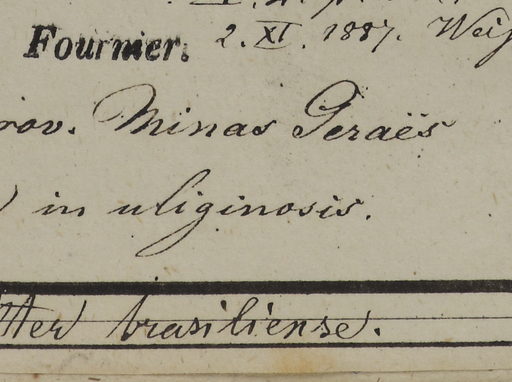 Fournier. 2. XI. 1887.
rov. Minas Geraës
in uliginosis.
brasiliense.